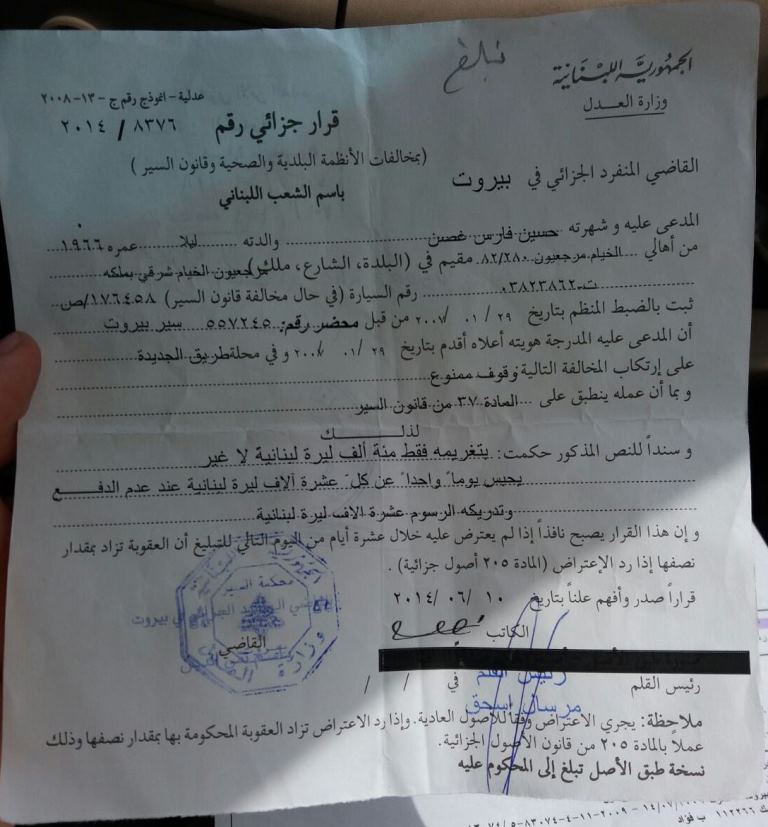 تبلغ
الجمهورية اللبنانية
وزارة العدل
عدلية - انموذج رقم ج - ١٣ - ٢٠٠٨
قرار جزائي رقم ٨٣٧٦ / ٢٠١٤
(بمخالفات الأنظمة البلدية والصحية وقانون السير)
القاضي المنفرد الجزائي في بيروت
باسم الشعب اللبناني
المدعى عليه و شهرته حسين فارس غصن والدته ليلا عمره ١٩٦٦
من أهالي الخيام مرجعيون ٨٢/٢٨٠ مقيم في (البلدة، الشارع، ملك) مرجعيون الخيام شرقي بملكه
ت ٠٣٨٢٣٨٦٢ رقم السيارة (في حال مخالفة قانون السير) ١٧٦٤٥٨/ص
ثبت بالضبط المنظم بتاريخ ٢٩ / ٠١ / من قبل محضر رقم: ٥٥٧٢٤٥ سير بيروت
أن المدعى عليه المدرجة هويته أعلاه أقدم بتاريخ ٢٩ / ٠١ / و في محلة طريق الجديدة
على إرتكاب المخالفة التالية وقوف ممنوع
و بما أن عمله ينطبق على المادة ٣٧ من قانون السير
لذلك
و سنداً للنص المذكور حكمت: بتغريمه فقط مئة ألف ليرة لبنانية لا غير
يحبس يوماً واحداً عن كل عشرة آلاف ليرة لبنانية عند عدم الدفع
وتدريكه الرسوم عشرة الاف ليرة لبنانية
و إن هذا القرار يصبح نافذاً إذا لم يعترض عليه خلال عشرة أيام من اليوم التالي للتبليغ أن العقوبة تزاد بمقدار
نصفها إذا رد الإعتراض (المادة ٢٠٥ أصول جزائية) .
قراراً صدر وأفهم علناً بتاريخ ١٠ / ٠٦ / ٢٠١٤
الكاتب
القاضي
محكمة السير
رئيس القلم في / /
رئيس القلم
مرسال اسحق
ملاحظة: يجري الاعتراض وفقاً للأصول العادية. وإذا رد الاعتراض تزاد العقوبة المحكومة بها بمقدار نصفها وذلك
عملاً بالمادة ٢٠٥ من قانون الأصول الجزائية.
نسخة طبق الأصل تبلغ إلى المحكوم عليه